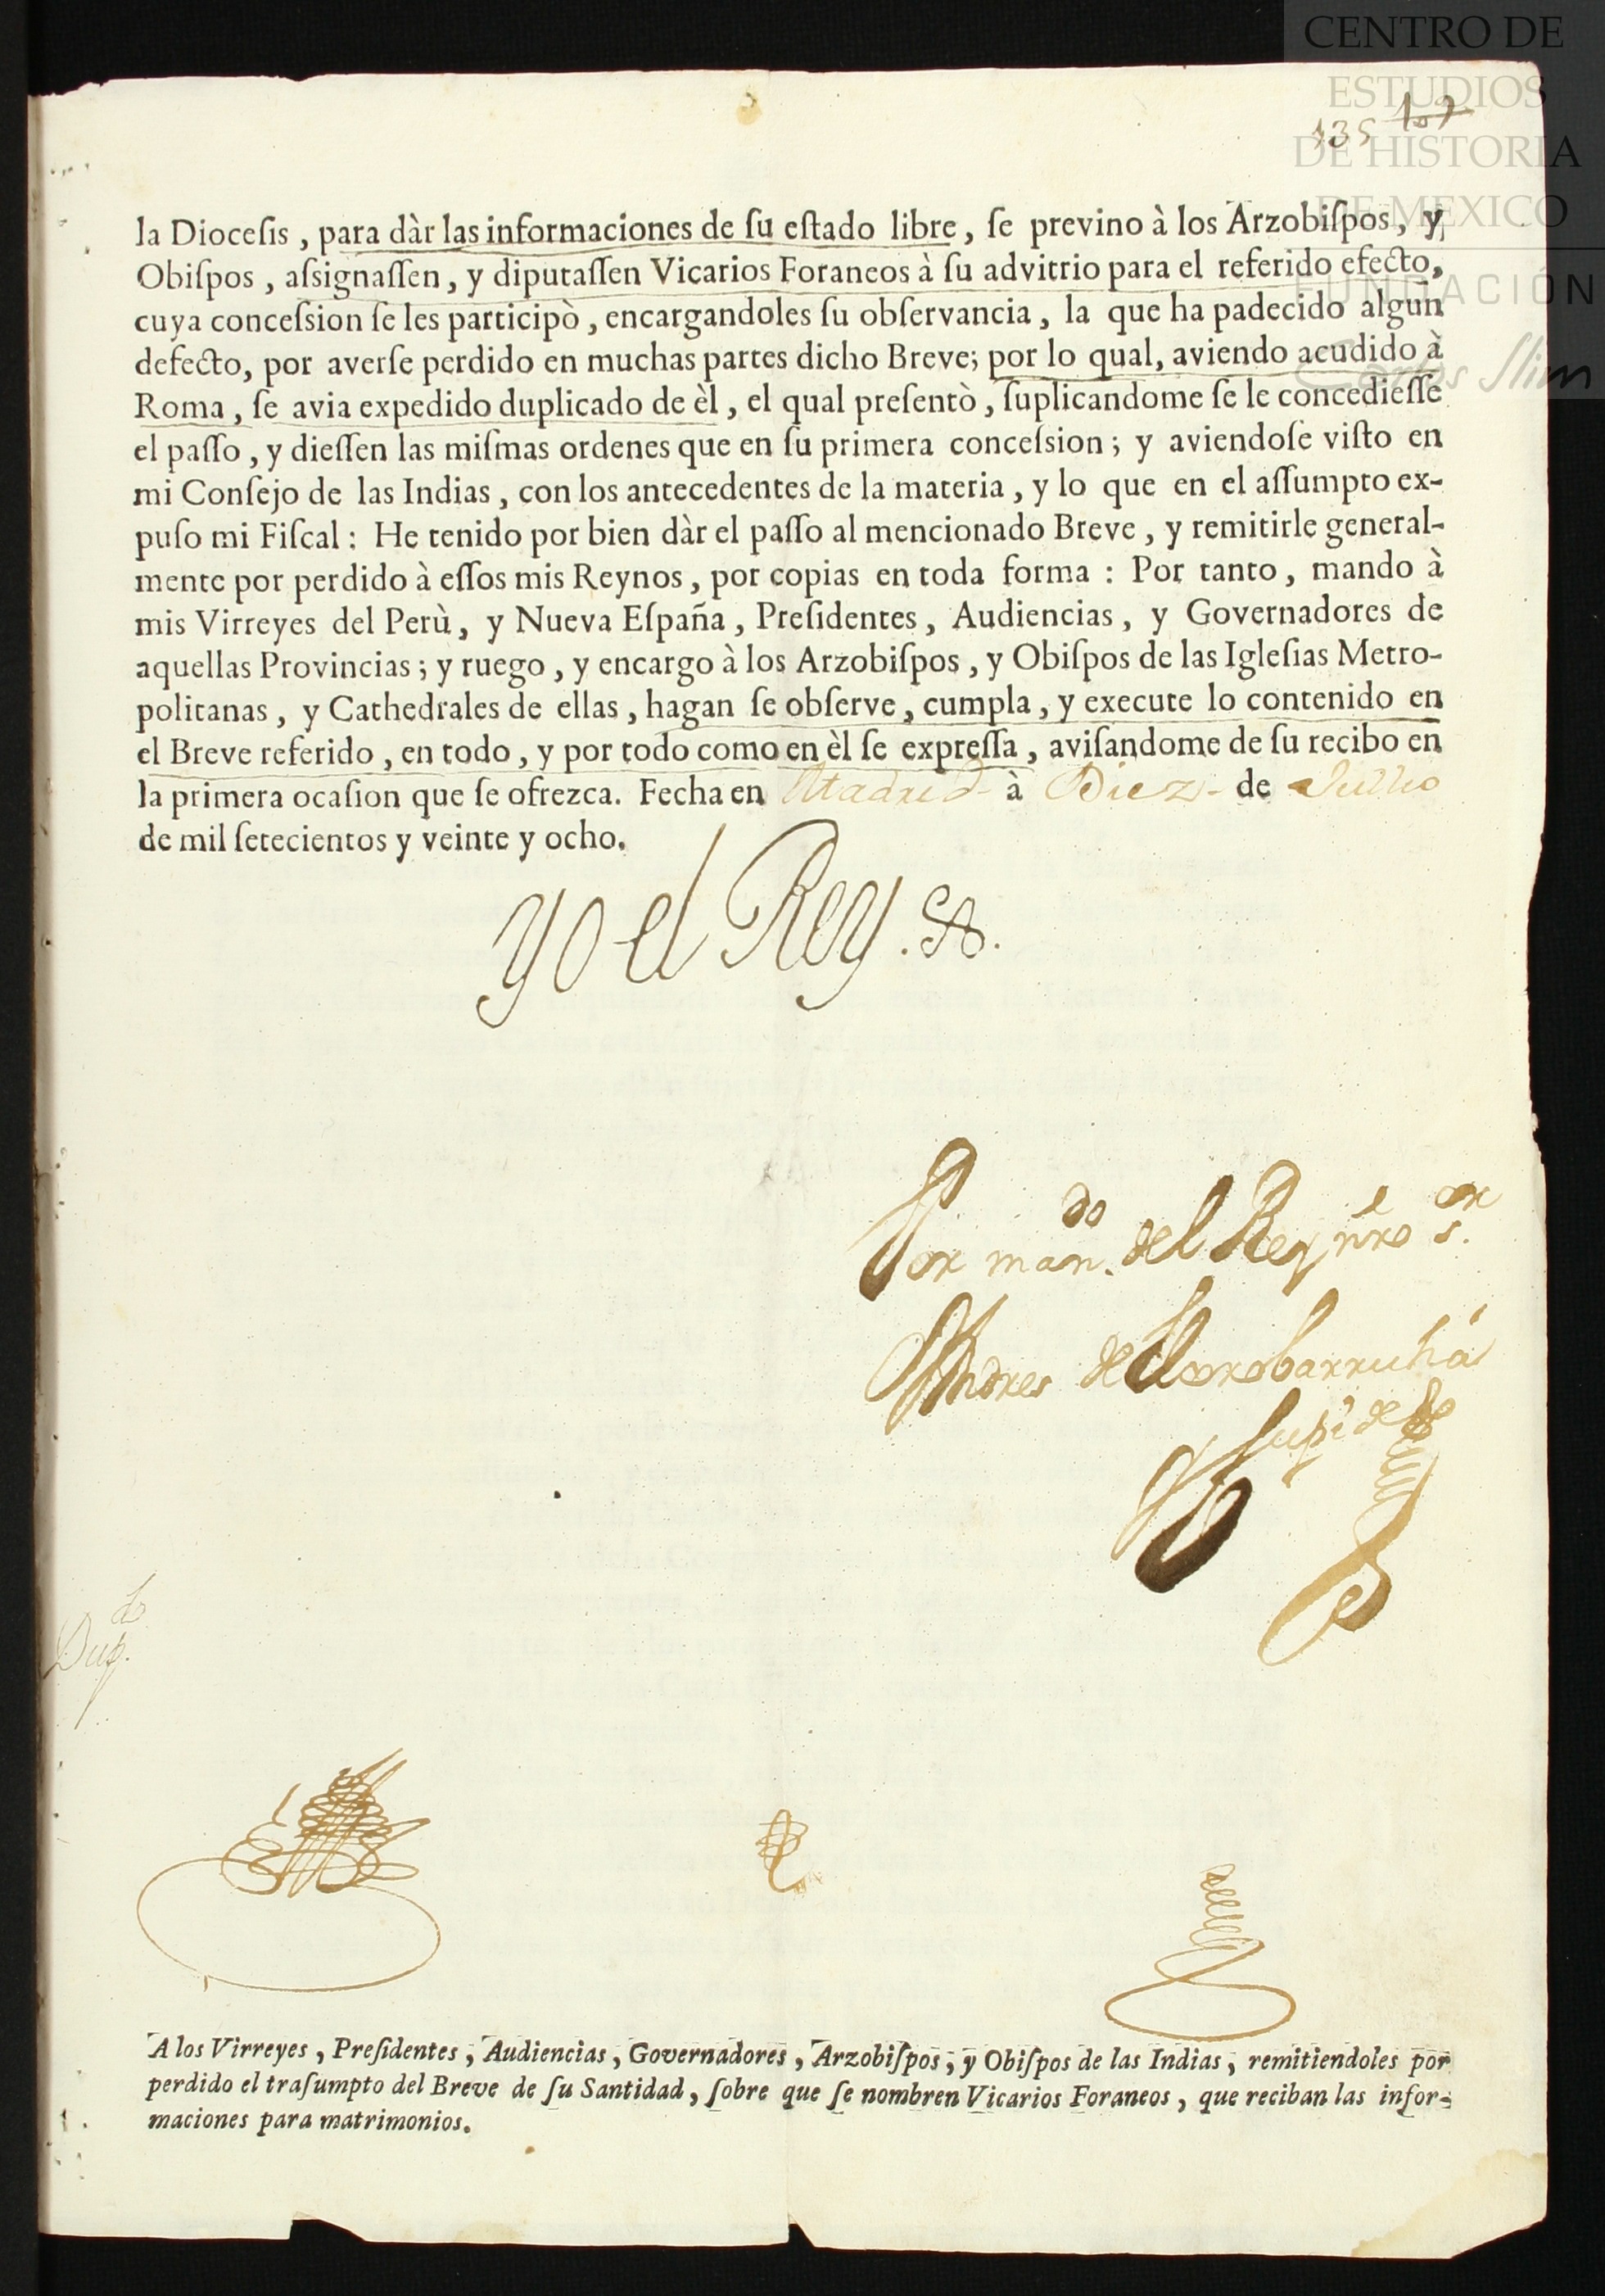 CENTRO DE
ESTUDIOS
DE HISTORIA
DE MEXICO
FUNDACIÓN
Carlos Slim
135 107
la Dioceſis, para dàr las informaciones de ſu eſtado libre, ſe previno à los Arzobiſpos, y
Obiſpos, aſsignaſſen, y diputaſſen Vicarios Foraneos à ſu advitrio para el referido efecto,
cuya conceſsion ſe les participò, encargandoles ſu obſervancia, la que ha padecido algun
defecto, por averſe perdido en muchas partes dicho Breve; por lo qual, aviendo acudido à
Roma, ſe avia expedido duplicado de èl, el qual preſentò, ſuplicandome ſe le concedieſſe
el paſſo, y dieſſen las miſmas ordenes que en ſu primera conceſsion; y aviendoſe viſto en
mi Conſejo de las Indias, con los antecedentes de la materia, y lo que en el aſſumpto ex-
puſo mi Fiſcal: He tenido por bien dàr el paſſo al mencionado Breve, y remitirle general-
mente por perdido à eſſos mis Reynos, por copias en toda forma: Por tanto, mando à
mis Virreyes del Perù, y Nueva Eſpaña, Preſidentes, Audiencias, y Governadores de
aquellas Provincias; y ruego, y encargo à los Arzobiſpos, y Obiſpos de las Igleſias Metro-
politanas, y Cathedrales de ellas, hagan ſe obſerve, cumpla, y execute lo contenido en
el Breve referido, en todo, y por todo como en èl ſe expreſſa, aviſandome de ſu recibo en
la primera ocaſion que ſe ofrezca. Fecha en Madrid à Diez de Jullio
de mil ſetecientos y veinte y ocho.
Yo el Rey.
Por man.do del Rey nro s.or
Andres de
Dup.do
A los Virreyes, Preſidentes, Audiencias, Governadores, Arzobiſpos, y Obiſpos de las Indias, remitiendoles por
perdido el traſumpto del Breve de ſu Santidad, ſobre que ſe nombren Vicarios Foraneos, que reciban las infor-
maciones para matrimonios.